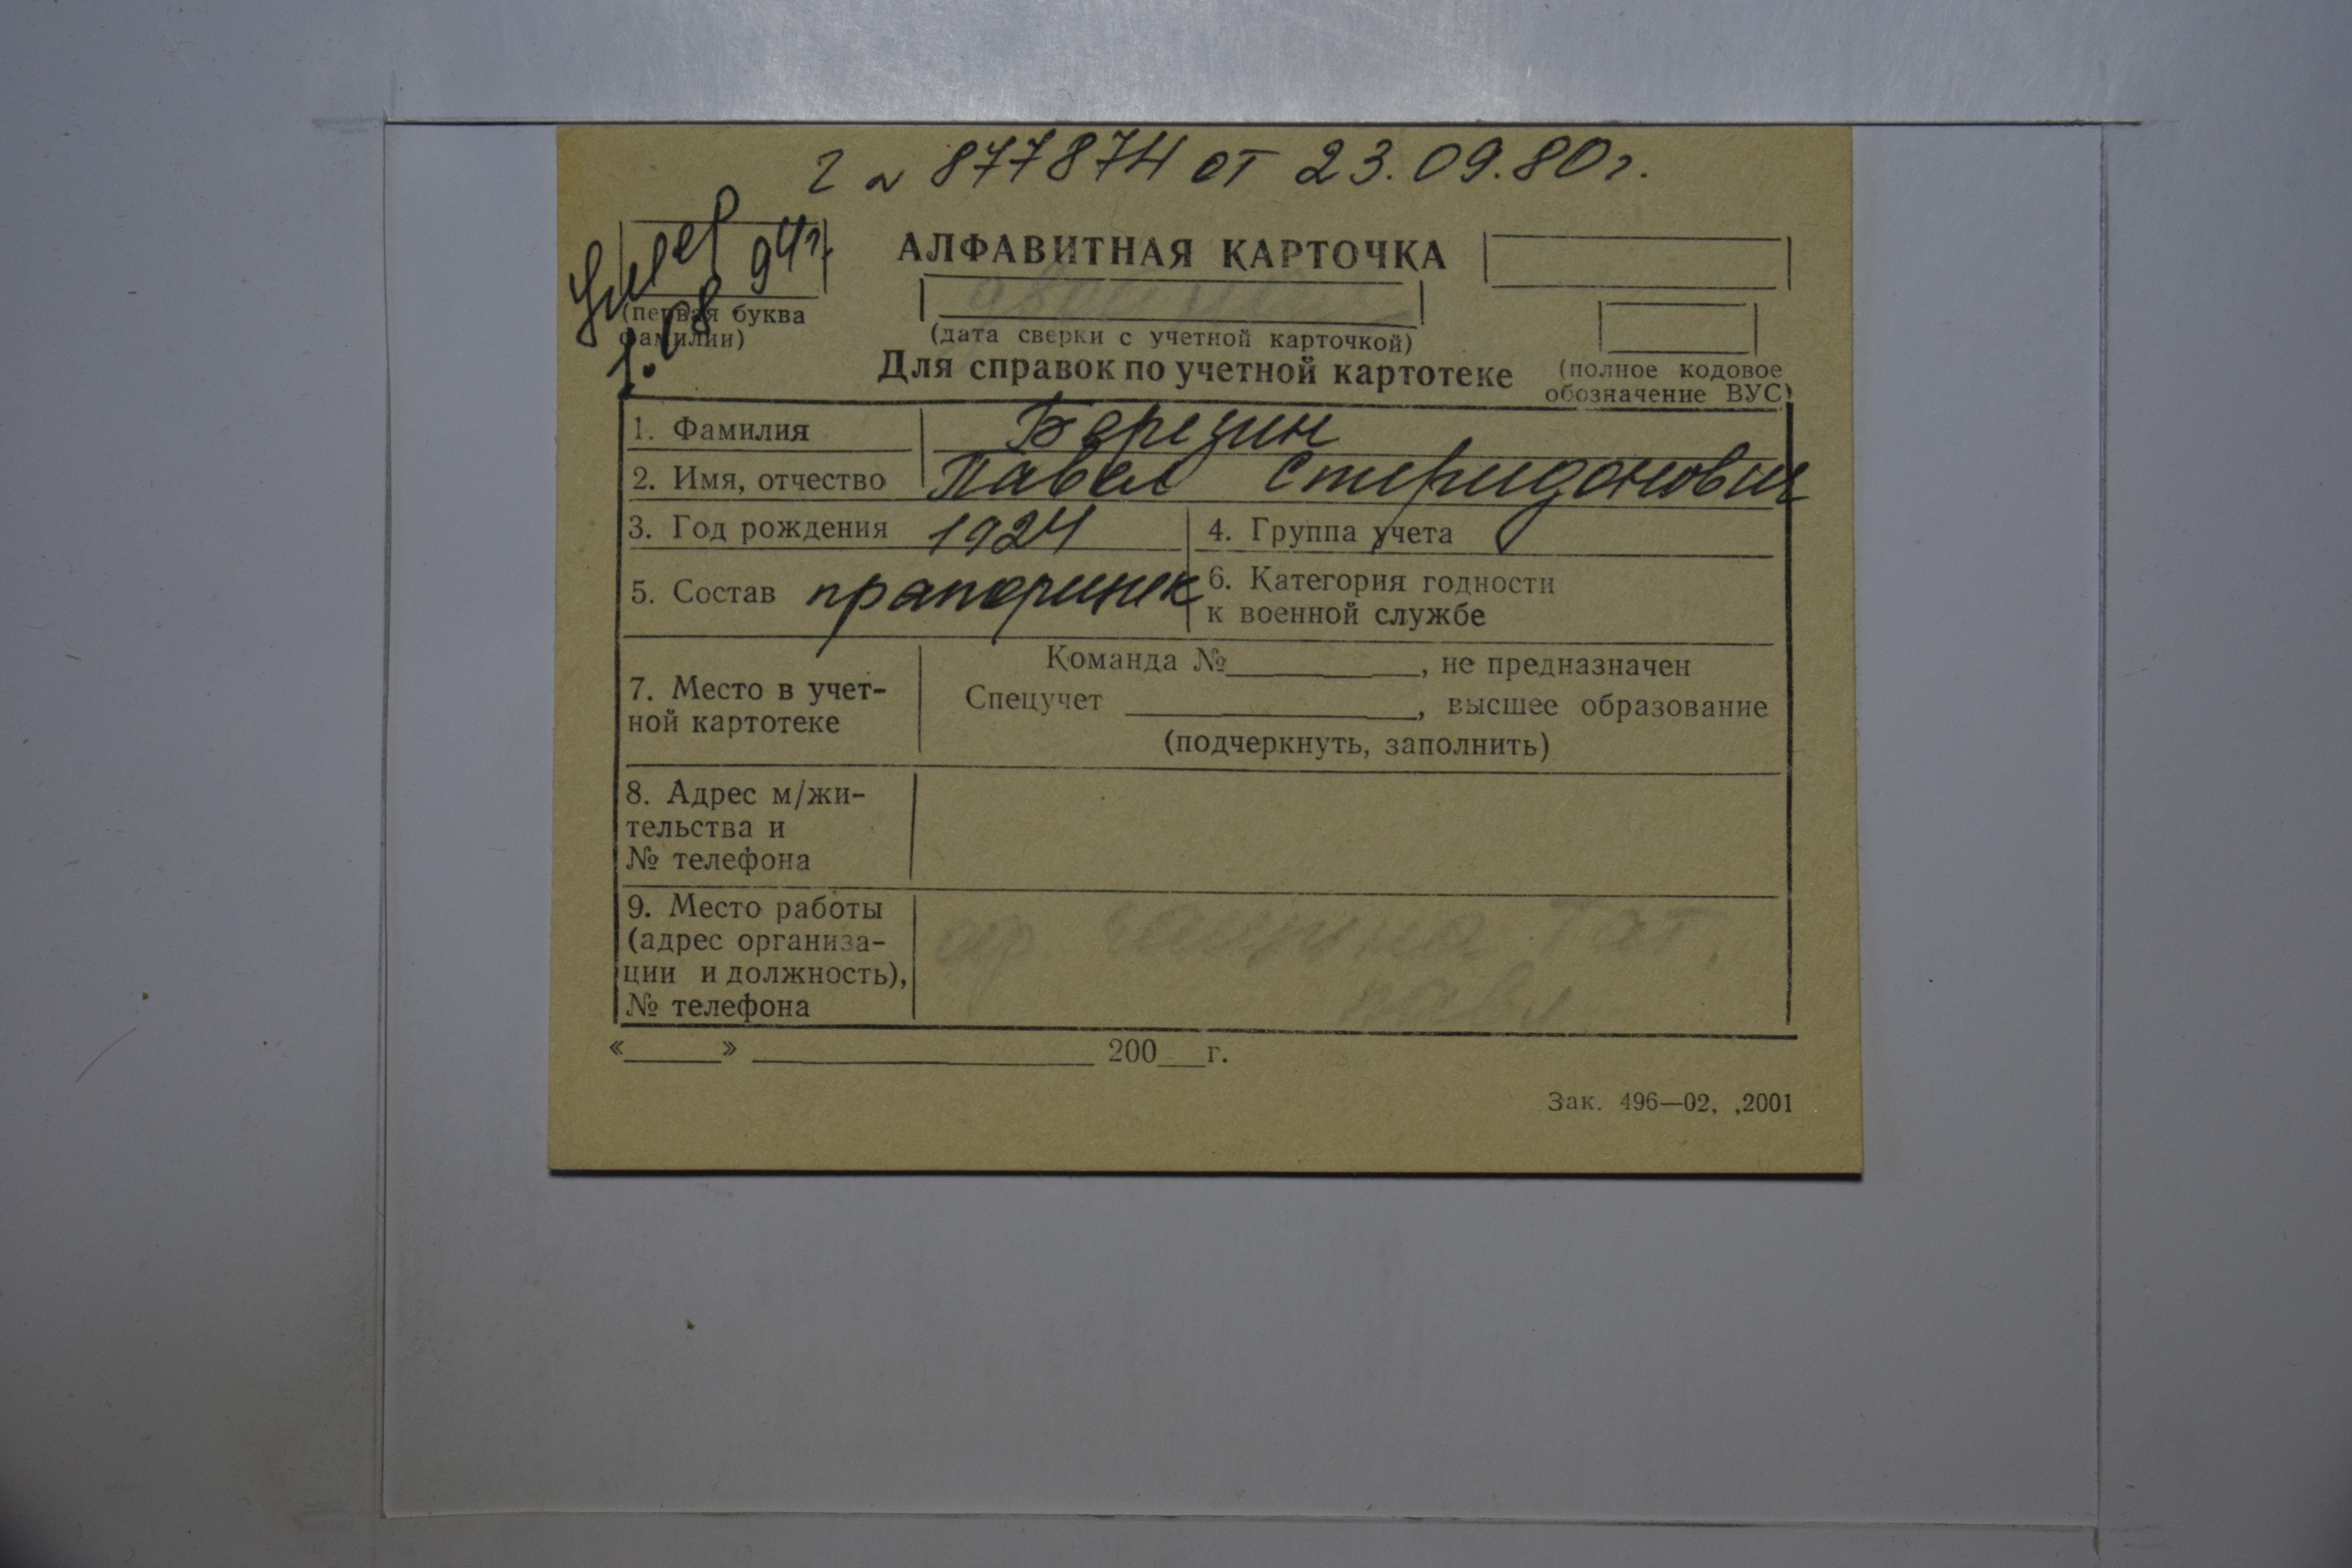 Г N 877874 от 23.09.80г.
Умер
1.08.94г.
АЛФАВИТНАЯ КАРТОЧКА
(первая буква
фамилии)
(дата сверки с учетной карточкой)
Для справок по учетной картотеке
(полное кодовое
обозначение ВУС)
1. Фамилия Березин
2. Имя, отчество Павел Спиридонович
3. Год рождения 1924
4. Группа учета
5. Состав прапорщик
6. Категория годности
к военной службе
7. Место в учет-
ной картотеке
Команда №________, не предназначен
Спецучет ____________, высшее образование
(подчеркнуть, заполнить)
8. Адрес м/жи-
тельства и
№ телефона
9. Место работы
(адрес организа-
ции и должность),
№ телефона
«____» ______________ 200__г.
Зак. 496—02, ,2001